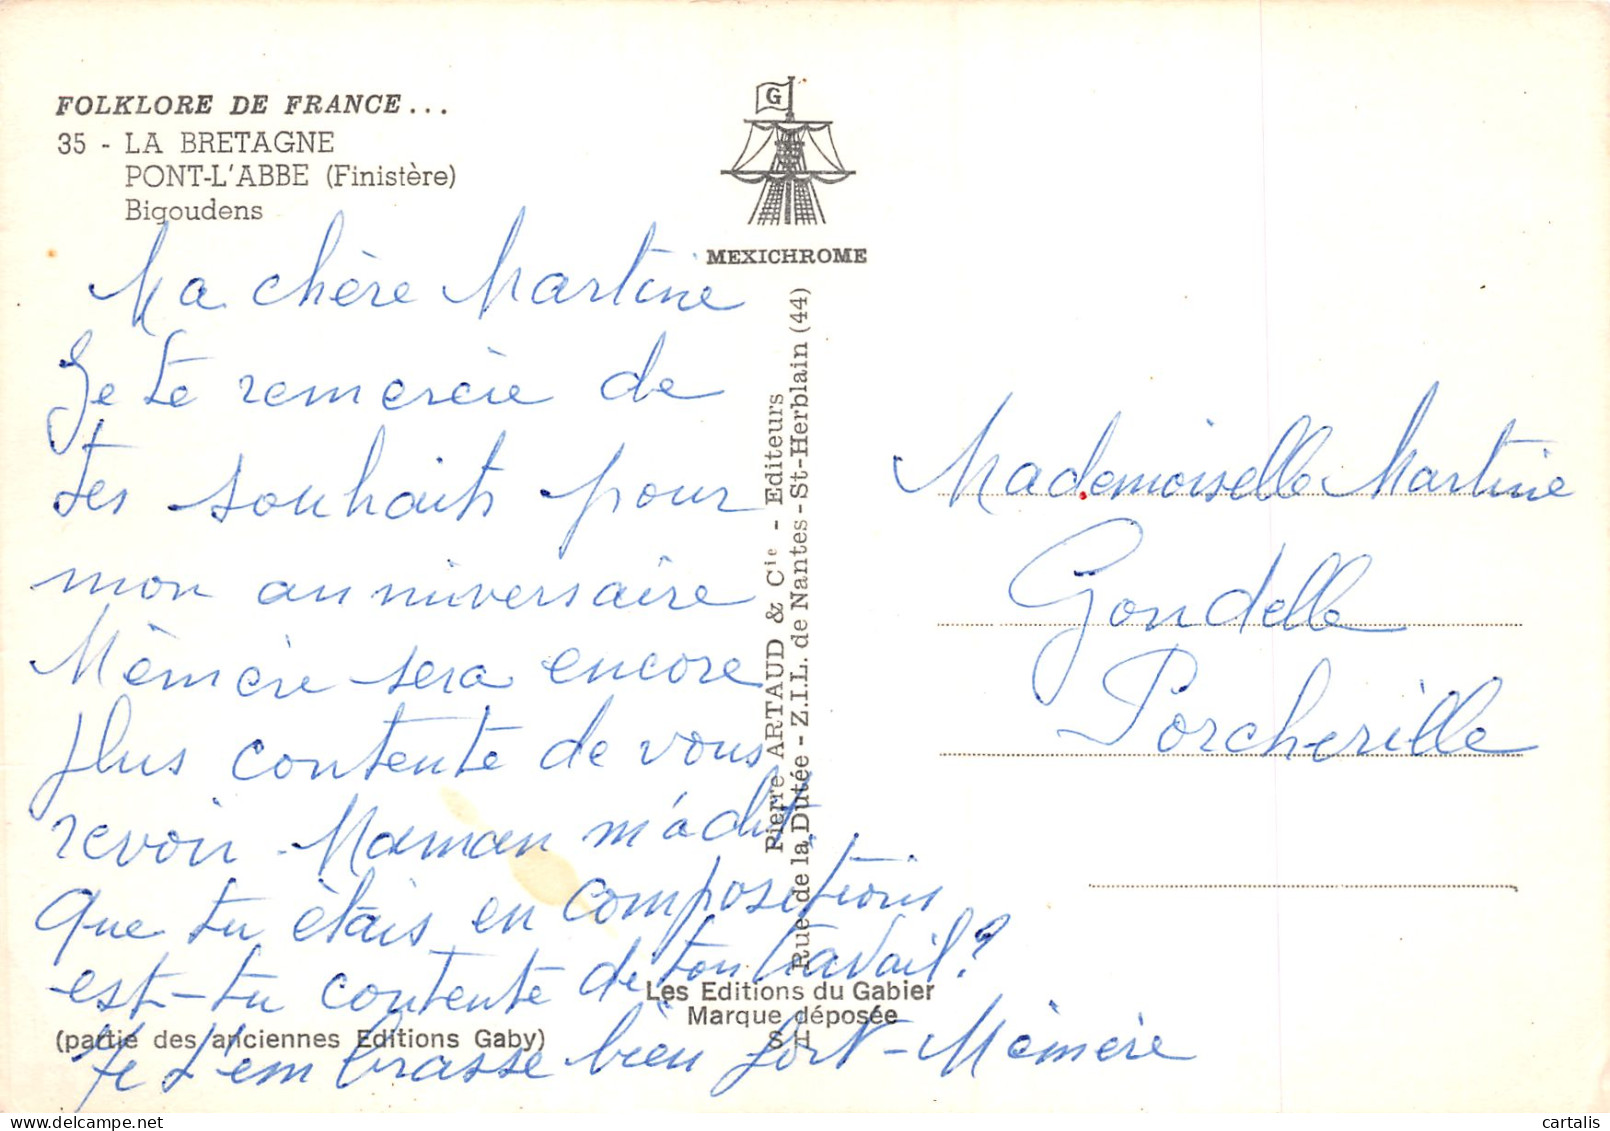 FOLKLORE DE FRANCE...
35 - LA BRETAGNE
PONT-L'ABBE (Finistère)
Bigoudens
G
MEXICHROME
Pierre ARTAUD & Cie - Editeurs
Rue de la Dutée - Z.I.L. de Nantes-St-Herblain (44)
Ma chère Martine
Je te remercie de
tes souhaits pour
mon anniversaire
Mèmère sera encore
plus contente de vous
revoir. Maman m'a dit
que tu étais en compositions
est-tu contente de ton travail?
Je t'embrasse bien fort - Mèmère
Mademoiselle Martine
Gondelle
Porcheville
Les Editions du Gabier
Marque déposée
(partie des anciennes Editions Gaby)
cartalis